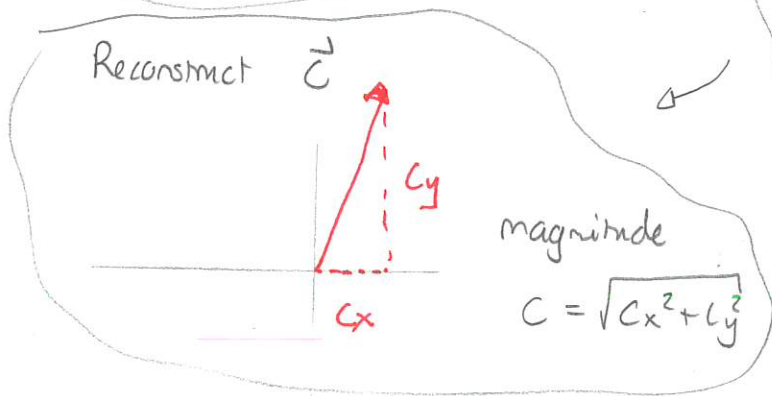 Reconstruct C⃗
Cy
magnitude
Cx
C = √(Cx² + Cy²)